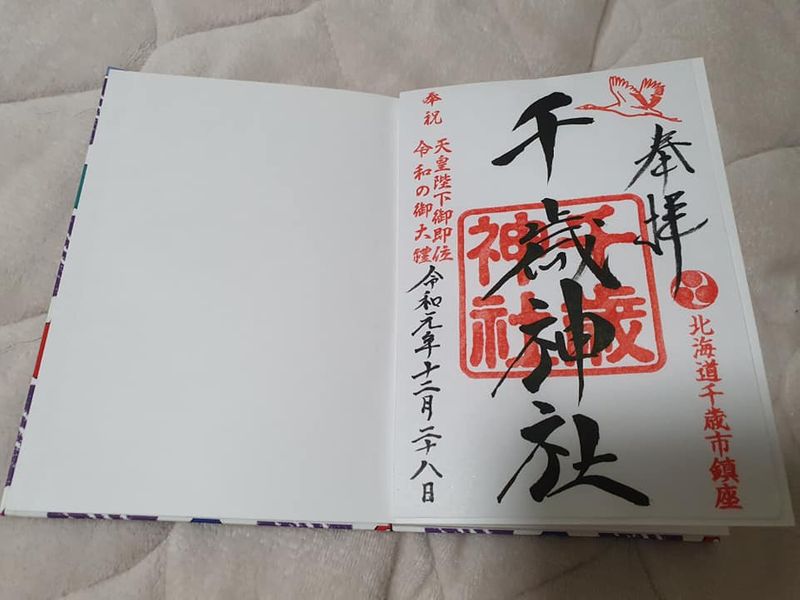 奉拝
北海道千歳市鎮座
千歳神社
千歳
神社
奉祝
天皇陛下御即位
令和の御大禮
令和元年十二月二十八日